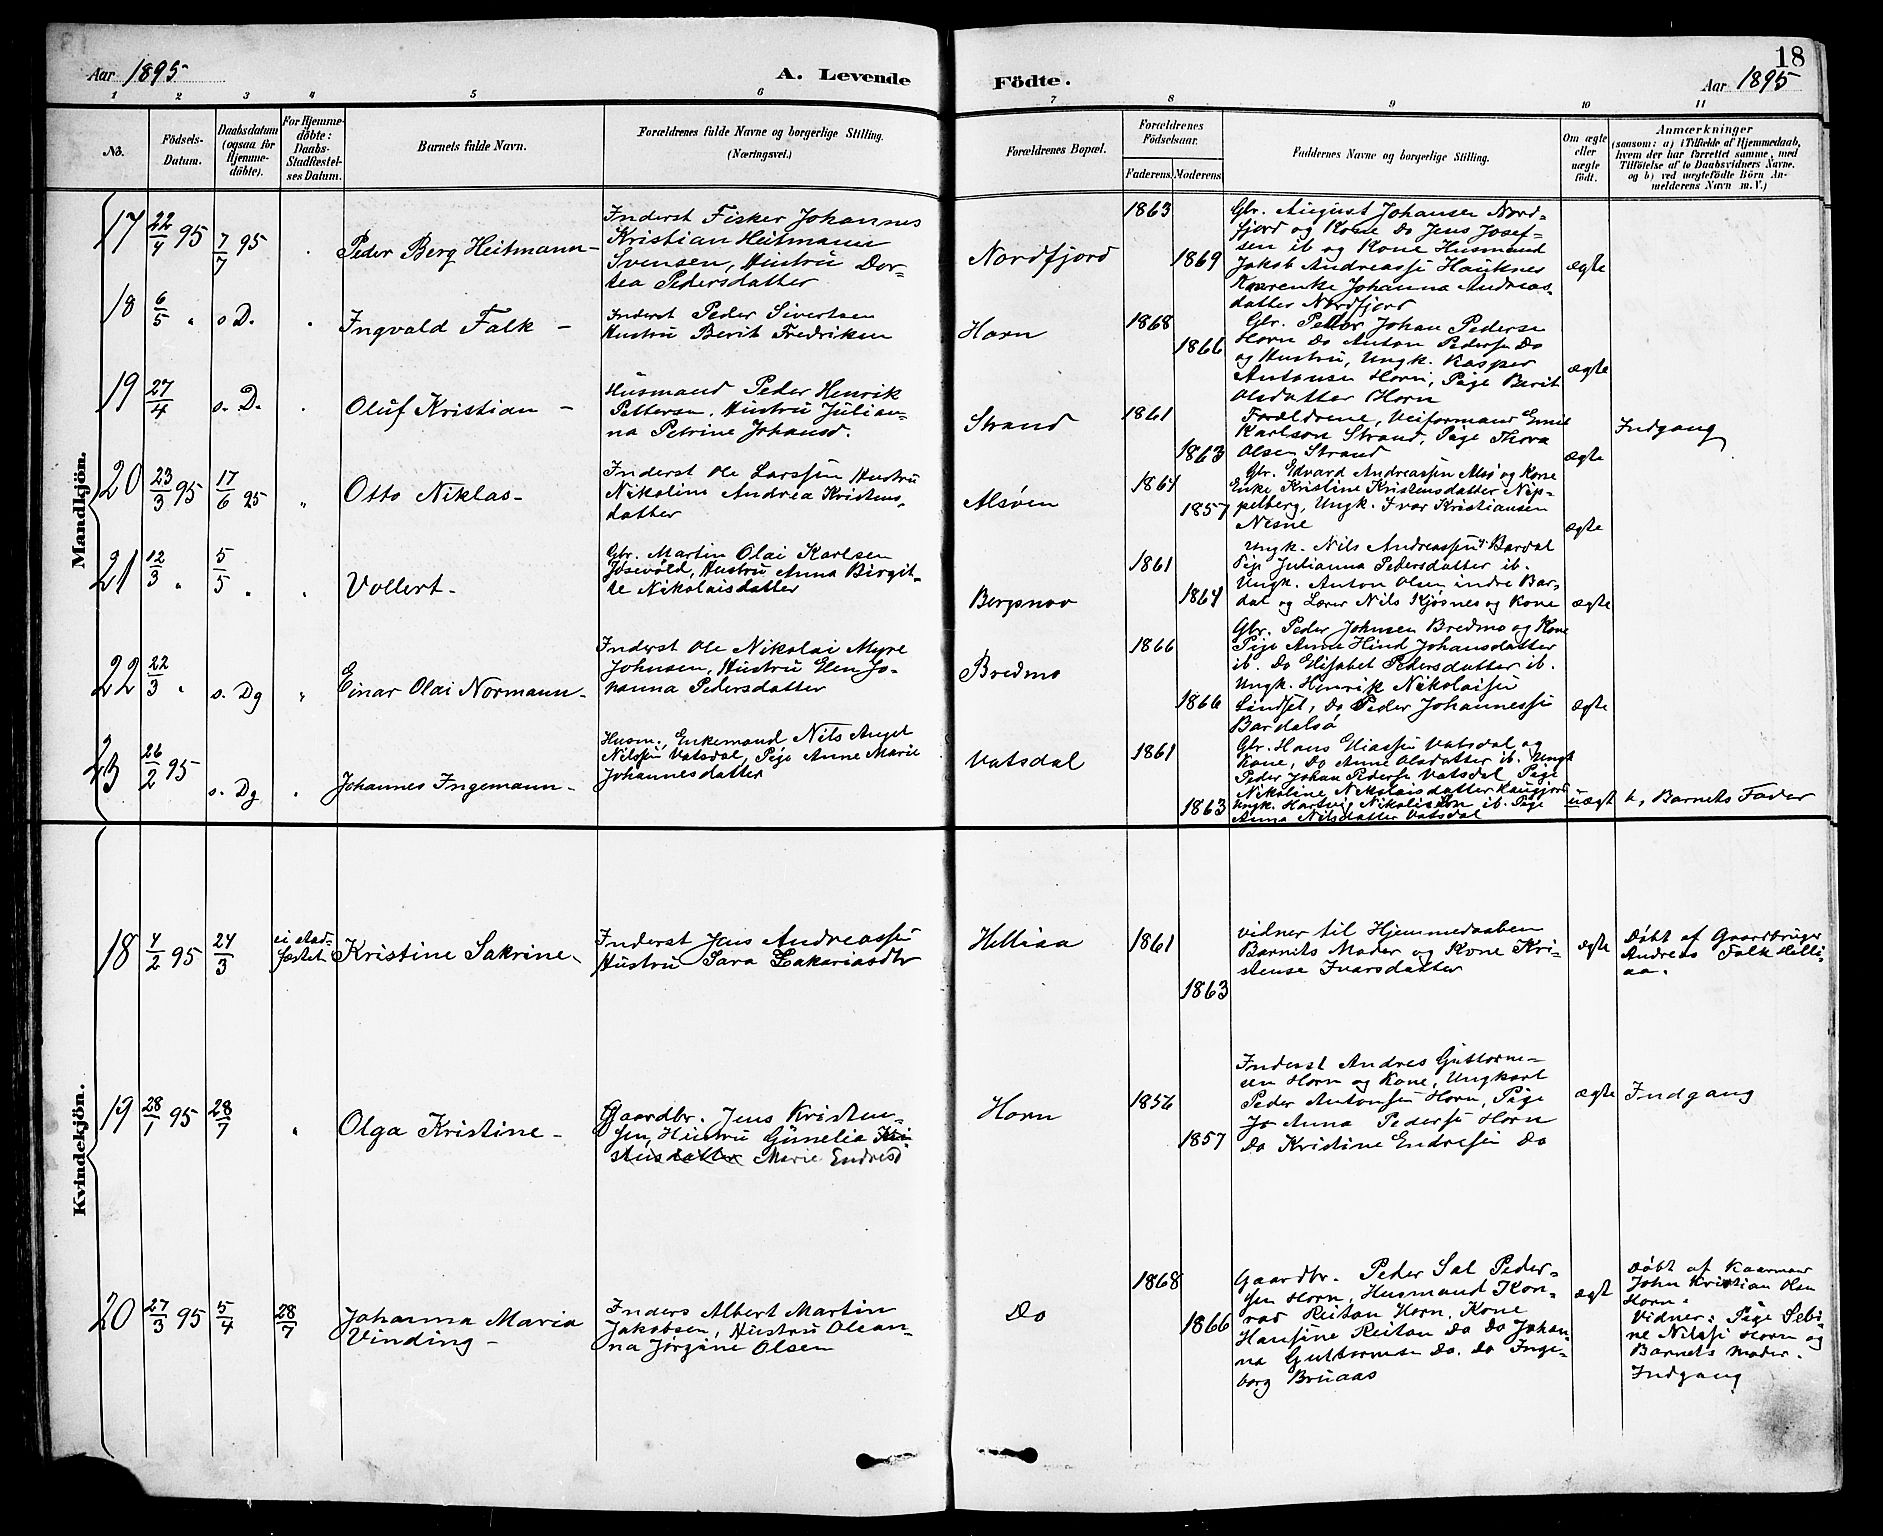 Aar 1895
A. Levende
Födte.
18
Aar 1895
1 2 3 4 5 6 7 8 9 10 11
No.
Födsels-
Datum.
Daabsdatum
(ogsaa för
Hjemme-
döbte).
For Hjemme-
döbte:
Daabs-
Stadfæstel-
ses Datum.
Barnets fulde Navn.
Forældrenes fulde Navne og borgerlige Stilling.
(Næringsvei.)
Forældrenes Bopæl.
Forældrenes
Födselsaar.
Faderens. Moderens.
Faddernes Navne og borgerlige Stilling.
Om ægte
eller
uægte
födt.
Anmærkninger
(saasom: a) i Tilfælde af Hjemmedaab,
hvem der har forrettet samme, med
Tilföielse af to Daabsvidners Navne.
og b) ved uægtefödte Börn An-
melderens Navn m. V.)
Mandkjön.
17 22/4 95 7/7 95 "
Peder Berg Heitmann -
Inderst Fisker Johannes
Kristian Heitmann
Svensen, Hustru Dor-
tea Pedersdatter
Nordfjord
1863
1869
Gbr. August Johansen Nord-
fjord og Kone Do Jens Josef-
sen ib og Kone Husmand
Jakob Andreassen Hauknes
Enke Johanna Andreas-
datter Nordfjord
ægte
18 6/5 " s D. "
Ingvald Falk -
Inderst Peder Sivertsen
Hustru Berit Fredriksen
Horn
1868
1866
Gbr. Peder Johan Pedersen
Horn Do Anton Pedersen Do
og Hustru, Ungk. Kasper
Antonsen Horn, Pige Berit
Olsdatter Horn
ægte
19 27/4 s. D. "
Oluf Kristian -
Husmand Peder Henrik
Pettersen, Hustru Julian-
na Petrine Johansd.
Strand
1861
1863
Forældrene, Veiformand Emil
Karlson Strand, Pige Thora
Olsen Strand
ægte
Indgang
20 23/3 95 17/6 95 "
Otto Niklas -
Inderst Ole Larssen Hustru
Nikoline Andrea Kristens-
datter
Alsöen
1864
1857
Gbr. Edvard Andreassen Alsö og Kone
Enke Kristine Kristensdatter Nip-
pelberg, Ungk. Ivar Kristiansen
Nesne
ægte
21 12/3 " 5/5 " "
Vollert -
Gbr. Martin Olai Karlsen
Jösevold, Hustru Anna Birgit-
te Nikolaisdatter
Bergsnov
1861
1864
Ungk. Nils Andreassen Bardal
Pige Julianna Pedersdatter ib.
Ungk. Anton Olsen indre Bar-
dal og Lærer Nils Kjösnes og Kone
ægte
22 22/3 " s. Dg "
Einar Olai Normann -
Inderst Ole Nikolai Myre
Johnsen, Hustru Elen Jo-
hanna Pedersdatter
Bredmo
1866
1866
Gbr. Peder Johnsen Bredmo og Kone
Pige Anne Hind Johansdatter
ib. Do Elisabet Pedersdatter ib.
Ungk. Henrik Nikolaisen
Sandset, Do Peder Johannessen
Bardalsö
ægte
23 26/2 95 s. Dg "
Johannes Ingemann -
Husm., Enkemand Nils Angel
Nilssen Vatsdal, Pige Anne Marie
Johannesdatter
Vatsdal
1861
1863
Gbr. Hans Eliassen Vatsdal og
Kone, Do Anne Olsdatter ib. Ungk
Peder Johan Pederse Vatsdal, Pige
Nikoline Nikolaisdatter
Ungk. Hartvig ib. Pige
Anna Nilsdatter Vatsdal
uægt
b, Barnets Fader
Kvindekjön.
18 4/2 95 24/3
ei stad-
fæstet
Kristine Sakrine -
Inderst Jens Andreassen
Hustru Sara Zakariasdtr
Hellåa
1861
1863
vidner til Hjemmedaaben
Barnets Moder og Kone Kri-
stense Ivarsdatter
ægte
Döbt af Gaardbruger
Andreas Falk Helli-
aa.
19 28/1 95 28/7 "
Olga Kristine -
Gaardbr. Jens Kristen-
sen, Hustru Gunelia Kri-
stensdatter Marie Endresd
Horn
1856
1857
Inderst Andres Guttorm-
sen Horn og Kone, Ungkarl
Peder Antonsen Horn, Pige
Jo Anna Pedersen Horn
Do Kristine Endresen Do
ægte
Indgang
20 27/3 95 5/4 28/7
Johanna Maria
Vinding -
Inders Albert Martin
Jakobsen, Hustru Olean-
na Jörgine Olsen
Do
1868
1866
Gaardbr. Peder Sal Peder-
sen Horn, Husmand Kon-
rad Reitan Horn, Kone
Hansine Reitan Do Do Johan-
na Guttormsen Do. Do Inge-
borg Bruaas
ægt
Döbt af Kaarmand
John Kristian Olsen
Horn.
Vidner: Pige Sebi-
ne Nilsse Horn og
Barnets Moder.
Indgang